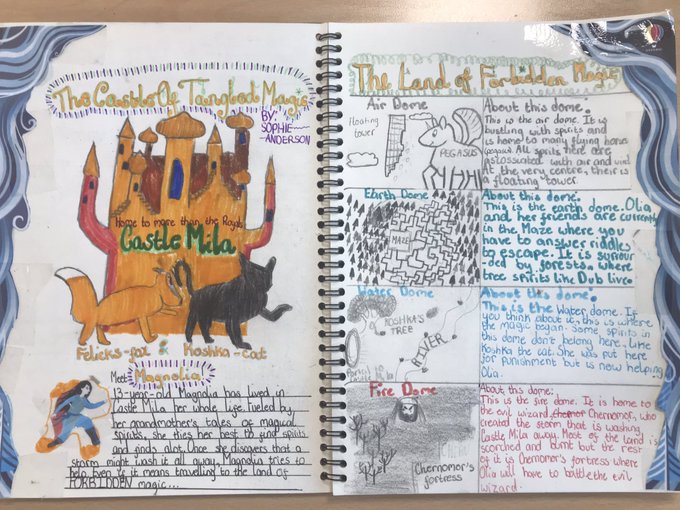 The Castle Of Tangled Magic
BY:
SOPHIE
ANDERSON
Home to more than the Royals
Castle Mila
Felicks-fox & Koshka-cat
Meet: Magnolia
13-year-old Magnolia has lived in
Castle Mila her whole life. Fueled by
her grandmother's tales of magical
spirits, she tries her best to find spirits
and finds alot. Once she discovers that a
storm might wash it all away, Magnolia tries to
help. Even if it means travelling to the land of
FORBIDDEN magic...
The Land of Forbidden Magic
Air Dome
Floating
tower
PEGASUS
About this dome.
This is the air dome. It is
bustling with spirits and
is home to many flying horse
(pegasus). All spirits here are
assossiated with air and wind.
At the very centre, their is
a floating tower.
Earth Dome
MAZE
About this dome.
This is the earth dome. Olia
and her friends are currently
in the Maze where you
have to answer riddles
to escape. It is surroun
-ded by forests, where
tree spirits like Dub live.
Water Dome
KOSHKA'S
TREE
RIVER
About this dome.
This is the Water dome. If
you think about it, this is where
the magic began. Some spirits in
this dome don't belong here. Like
Koshka the cat. She was put here
for punishment but is now helping
Olia.
Fire Dome
Chernomor's
fortress
About this dome:
This is the fire dome. It is home to
the evil wizard Chernomor, who
created the storm that is washing
Castle Mila away. Most of the land is
scorched and burnt but the rest
of it is Chernomor's fortress where
Olia will have to battle the evil
wizard.